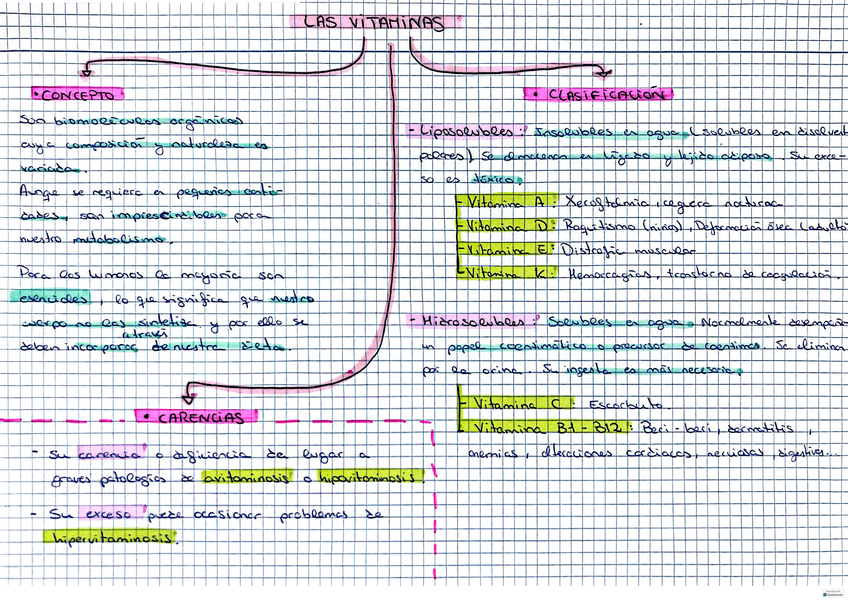 LAS VITAMINAS
• CONCEPTO
Son biomoléculas orgánicas
cuya composición y naturaleza es
variada.
Aunqe se requiera en pequeñas canti-
dades, son imprescindibles para
nuestro metabolismo.
Para los humanos la mayoría son
esenciales, lo que significa que nuestro
cuerpo no las sintetiza y por ello se
deben incorporar através de nuestra dieta.
• CARENCIAS
- Su carencia o deficiencia da lugar a
graves patologías de avitaminosis o hipovitaminosis.
- Su exceso puede ocasionar problemas de
hipervitaminosis.
• CLASIFICACIÓN
- Liposolubles: Insolubles en agua (solubles en disolvent
polares) Se almacenan en hígado y tejido adiposo. Su exce-
so es tóxico.
- Vitamina A: Xeroftalmia, ceguera nocturna
- Vitamina D: Raquitismo (niños), Deformación ósea (adulto
- Vitamina E: Distrofia muscular
- Vitamina K: Hemorragias, transtorno de coagulación.
- Hidrosolubles: Solubles en agua. Normalmente desempeña
un papel coenzimático o precursor de coenzimas. Se eliminan
por la orina. Su ingesta es más necesaria.
- Vitamina C: Escorbuto.
- Vitamina B1-B12: Beri-beri, dermatitis,
anemias, alteraciones cardiacas, nerviosas, digestivas...